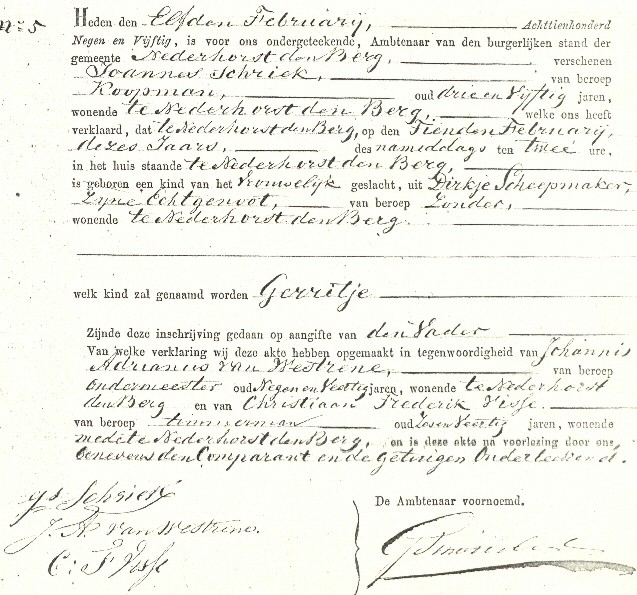 N° 5
Heden den Elfden February, Achttienhonderd
Negen en Vijftig, is voor ons ondergeteekende, Ambtenaar van den burgerlijken stand der
gemeente Nederhorst den Berg, verschenen
Joannes Schriek, van beroep
Koopman, oud drie en Vyftig jaren,
wonende te Nederhorst den Berg, welke ons heeft
verklaard, dat te Nederhorst den Berg, op den Tienden February,
dezes Jaars, des namiddags ten twee ure,
in het huis staande te Nederhorst den Berg,
is geboren een kind van het Vrouwelyk geslacht, uit Dirkje Scheepmaker,
Zyne Echtgenoot, van beroep Zonder,
wonende te Nederhorst den Berg.
welk kind zal genaamd worden Gerritje
Zijnde deze inschrijving gedaan op aangifte van den Vader
Van welke verklaring wij deze akte hebben opgemaakt in tegenwoordigheid van Johannis
Adrianus van Westrene, van beroep
Ondermeester oud Negen en Veertig jaren, wonende te Nederhorst
den Berg en van Christiaan Frederik Visse.
van beroep timmerman oud Zes en Veertig jaren, wonende
mede te Nederhorst den Berg, en is deze akte na voorlezing door ons,
benevens den Comparant en de Getuigen Onderteekend.
De Ambtenaar voornoemd.
Schriek
J. A. van Westrene.
C: F Visse